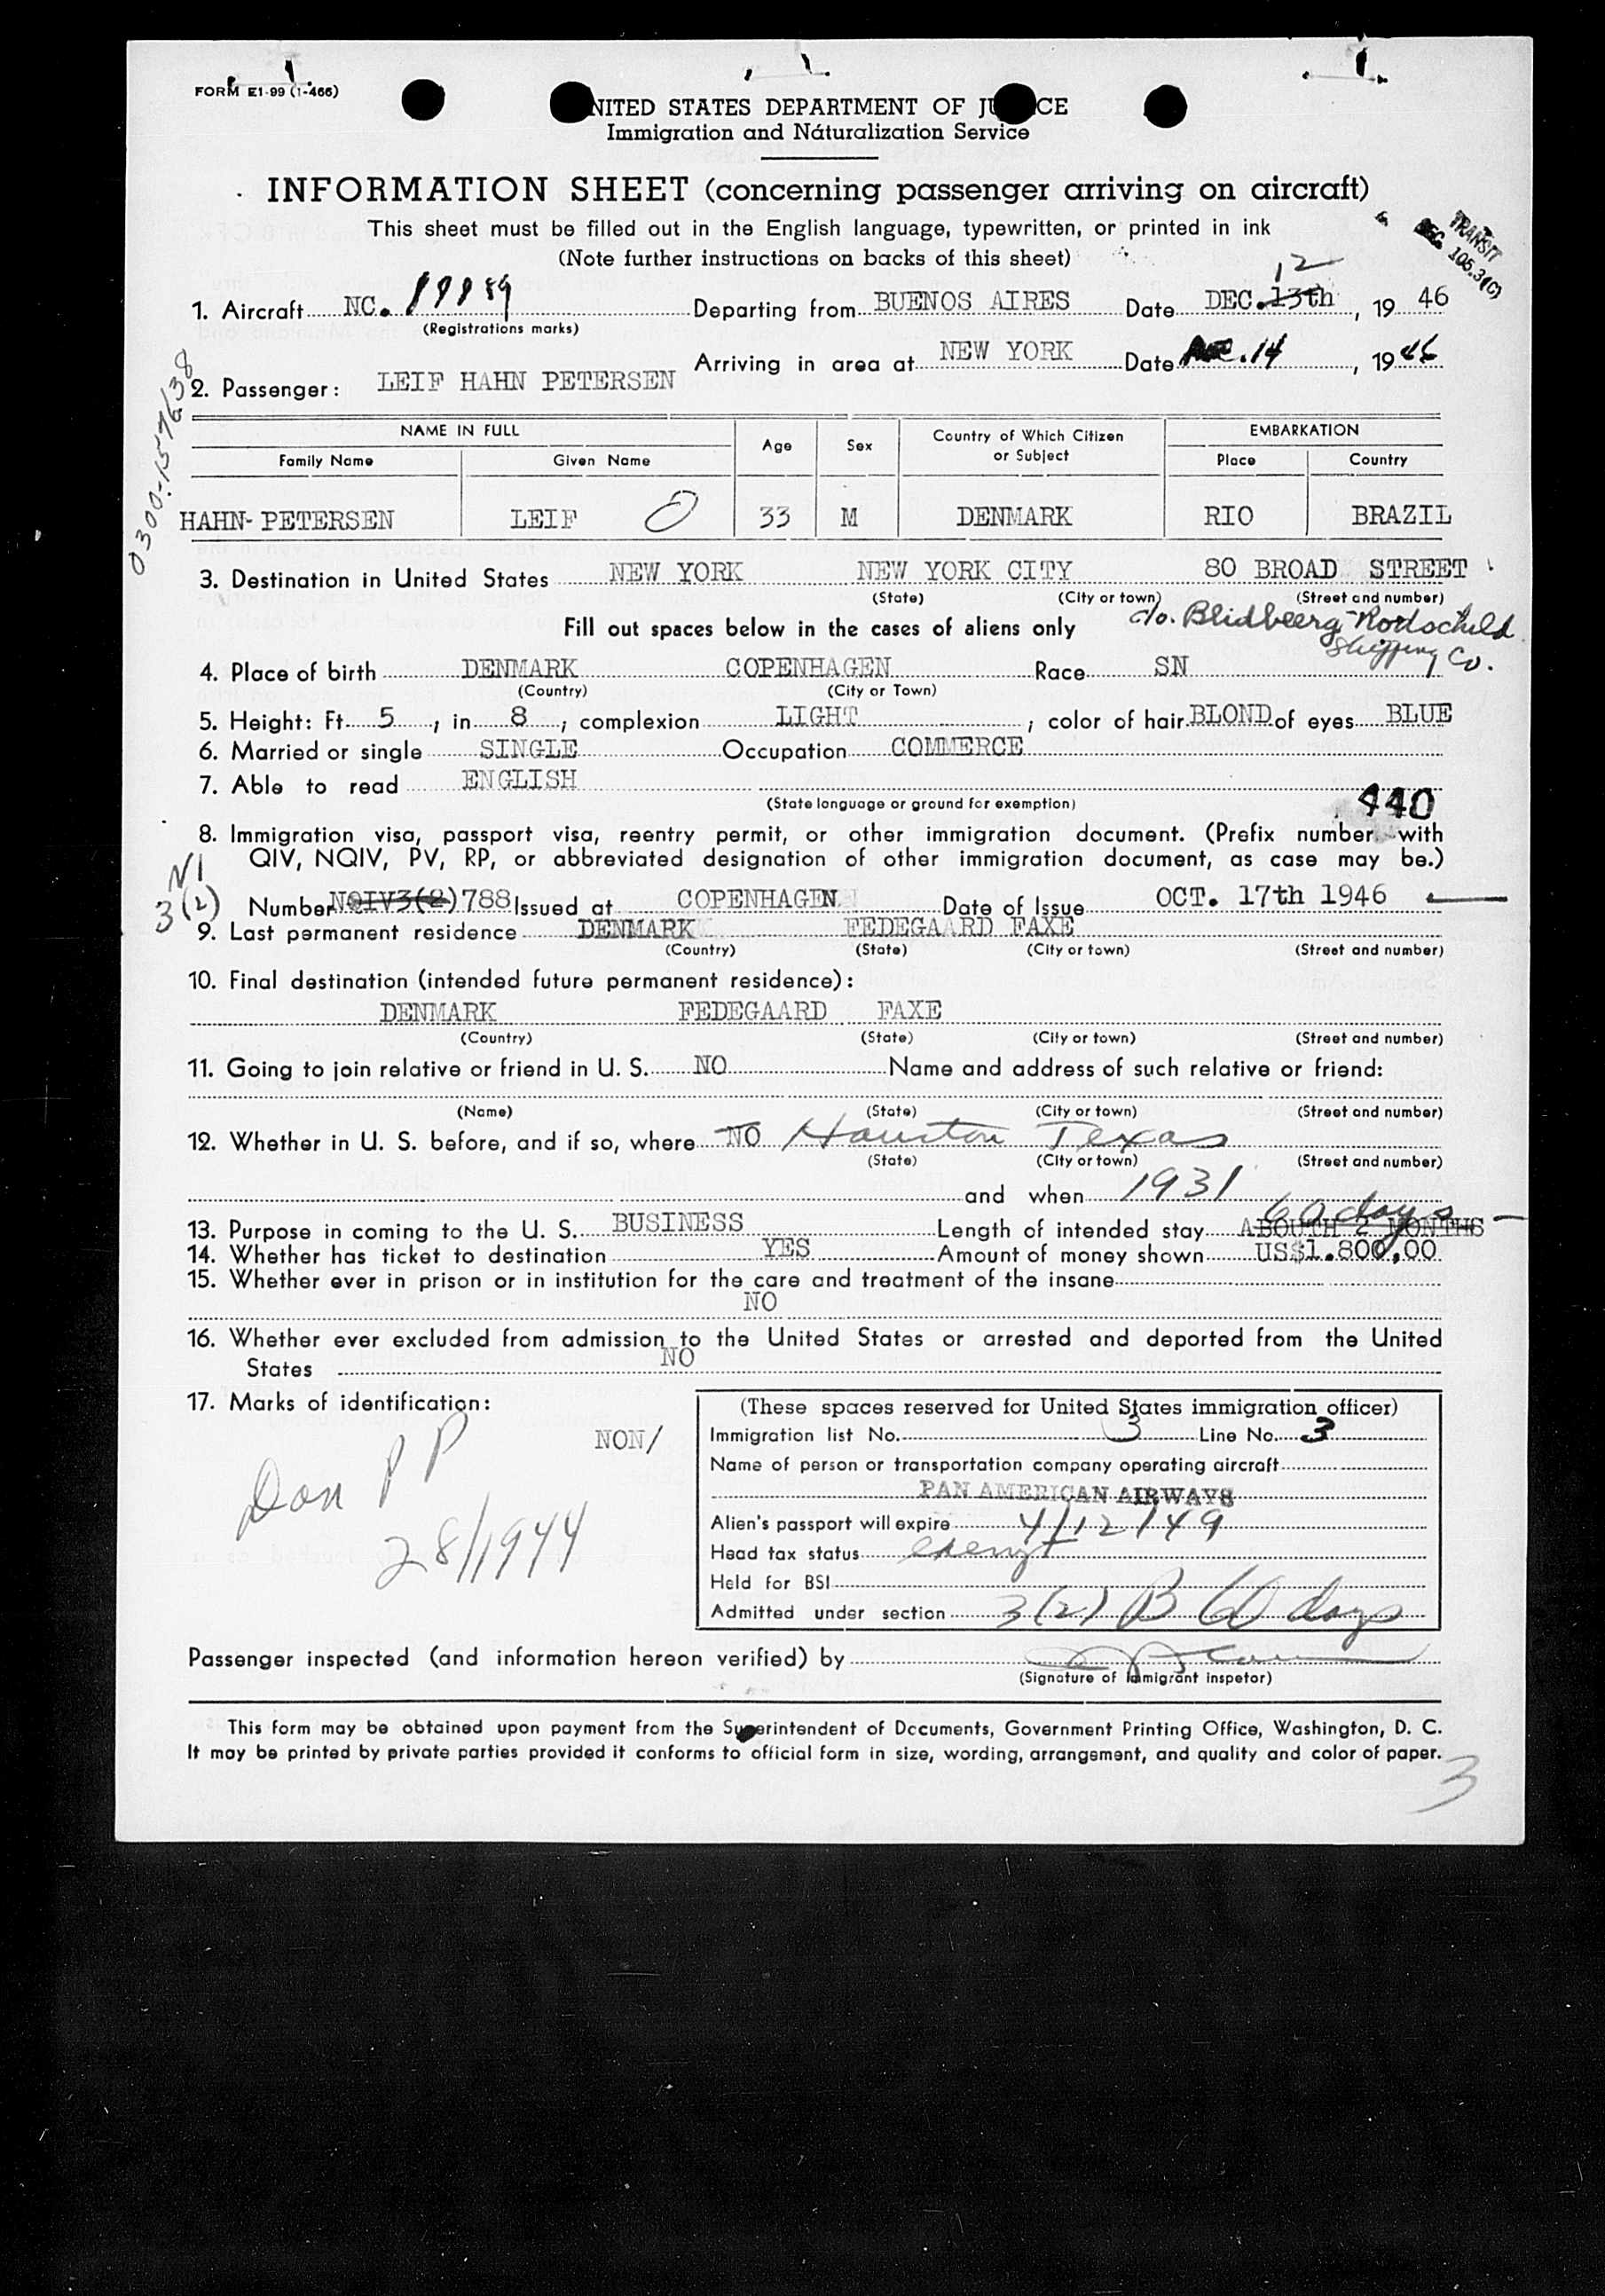 FORM E1-99 (1-466)
UNITED STATES DEPARTMENT OF JUSTICE
Immigration and Naturalization Service
INFORMATION SHEET (concerning passenger arriving on aircraft)
This sheet must be filled out in the English language, typewritten, or printed in ink
(Note further instructions on backs of this sheet)
TRANSIT
SEC. 105.3(C)
12
1. Aircraft NC. Departing from BUENOS AIRES Date DEC. 13th, 19 46
(Registrations marks)
Arriving in area at NEW YORK Date 14, 19 46
2. Passenger: LEIF HAHN PETERSEN
0300-157638
NAME IN FULL Age Sex Country of Which Citizen or Subject EMBARKATION
Family Name Given Name Place Country
HAHN-PETERSEN LEIF O 33 M DENMARK RIO BRAZIL
3. Destination in United States NEW YORK NEW YORK CITY 80 BROAD STREET
(State) (City or town) (Street and number)
Fill out spaces below in the cases of aliens only c/o. Blidbeerg-Rodschild
Shipping Co.
4. Place of birth DENMARK COPENHAGEN Race SN
(Country) (City or Town)
5. Height: Ft. 5, in 8; complexion LIGHT; color of hair BLOND of eyes BLUE
6. Married or single SINGLE Occupation COMMERCE
7. Able to read ENGLISH
(State language or ground for exemption)
440
8. Immigration visa, passport visa, reentry permit, or other immigration document. (Prefix number with
QIV, NQIV, PV, RP, or abbreviated designation of other immigration document, as case may be.)
VI
3(2)
Number NQIV3(2)788 Issued at COPENHAGEN Date of Issue OCT. 17th 1946
9. Last permanent residence DENMARK FEDEGAARD FAXE
(Country) (State) (City or town) (Street and number)
10. Final destination (intended future permanent residence):
DENMARK FEDEGAARD FAXE
(Country) (State) (City or town) (Street and number)
11. Going to join relative or friend in U. S. NO Name and address of such relative or friend:
(Name) (State) (City or town) (Street and number)
12. Whether in U. S. before, and if so, where NO Houston Texas
(State) (City or town) (Street and number)
and when 1931
60 days
13. Purpose in coming to the U. S. BUSINESS Length of intended stay ABOUTH 2 MONTHS
14. Whether has ticket to destination YES Amount of money shown US$1.800,00
15. Whether ever in prison or in institution for the care and treatment of the insane
NO
16. Whether ever excluded from admission to the United States or arrested and deported from the United
States NO
17. Marks of identification:
NON/
Dan PP
28/1944
(These spaces reserved for United States immigration officer)
Immigration list No. 3 Line No. 3
Name of person or transportation company operating aircraft
PAN AMERICAN AIRWAYS
Alien's passport will expire 4/12/49
Head tax status exempt
Held for BSI
Admitted under section 3(2) B 60 days
Passenger inspected (and information hereon verified) by
(Signature of Immigrant Inspetor)
This form may be obtained upon payment from the Superintendent of Documents, Government Printing Office, Washington, D. C.
It may be printed by private parties provided it conforms to official form in size, wording, arrangement, and quality and color of paper.
3